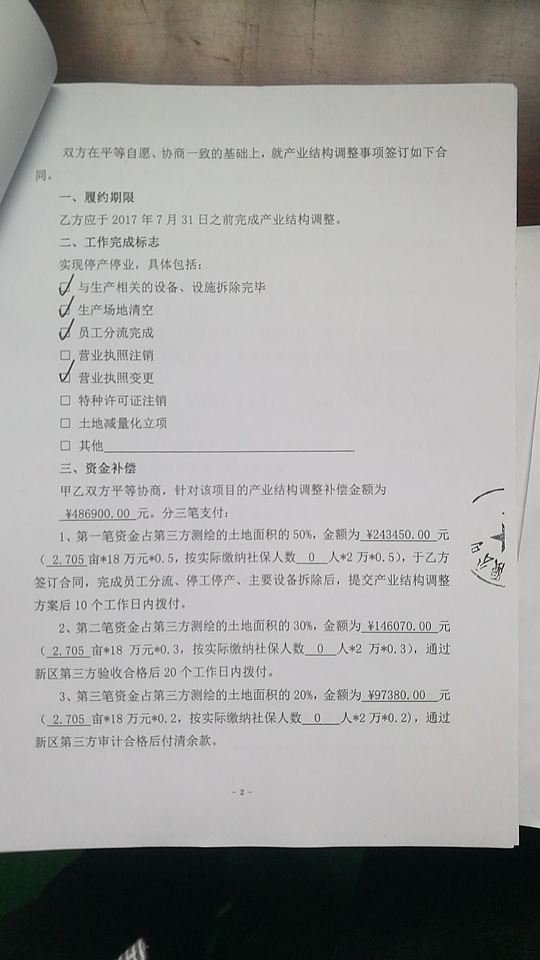 双方在平等自愿、协商一致的基础上，就产业结构调整事项签订如下合
同。
一、履约期限
乙方应于2017年7月31日之前完成产业结构调整。
二、工作完成标志
实现停产停业，具体包括：
☑ 与生产相关的设备、设施拆除完毕
☑ 生产场地清空
☑ 员工分流完成
☐ 营业执照注销
☑ 营业执照变更
☐ 特种许可证注销
☐ 土地减量化立项
☐ 其他
三、资金补偿
甲乙双方平等协商，针对该项目的产业结构调整补偿金额为
¥486900.00 元。分三笔支付：
1、第一笔资金占第三方测绘的土地面积的50%，金额为 ¥243450.00 元
（ 2.705 亩*18 万元*0.5，按实际缴纳社保人数 0 人*2 万*0.5），于乙方
签订合同，完成员工分流、停工停产、主要设备拆除后，提交产业结构调整
方案后10个工作日内拨付。
2、第二笔资金占第三方测绘的土地面积的30%，金额为 ¥146070.00 元
（ 2.705 亩*18 万元*0.3，按实际缴纳社保人数 0 人*2 万*0.3），通过
新区第三方验收合格后20个工作日内拨付。
3、第三笔资金占第三方测绘的土地面积的20%，金额为 ¥97380.00 元
（ 2.705 亩*18 万元*0.2，按实际缴纳社保人数 0 人*2 万*0.2），通过
新区第三方审计合格后付清余款。
- 2 -